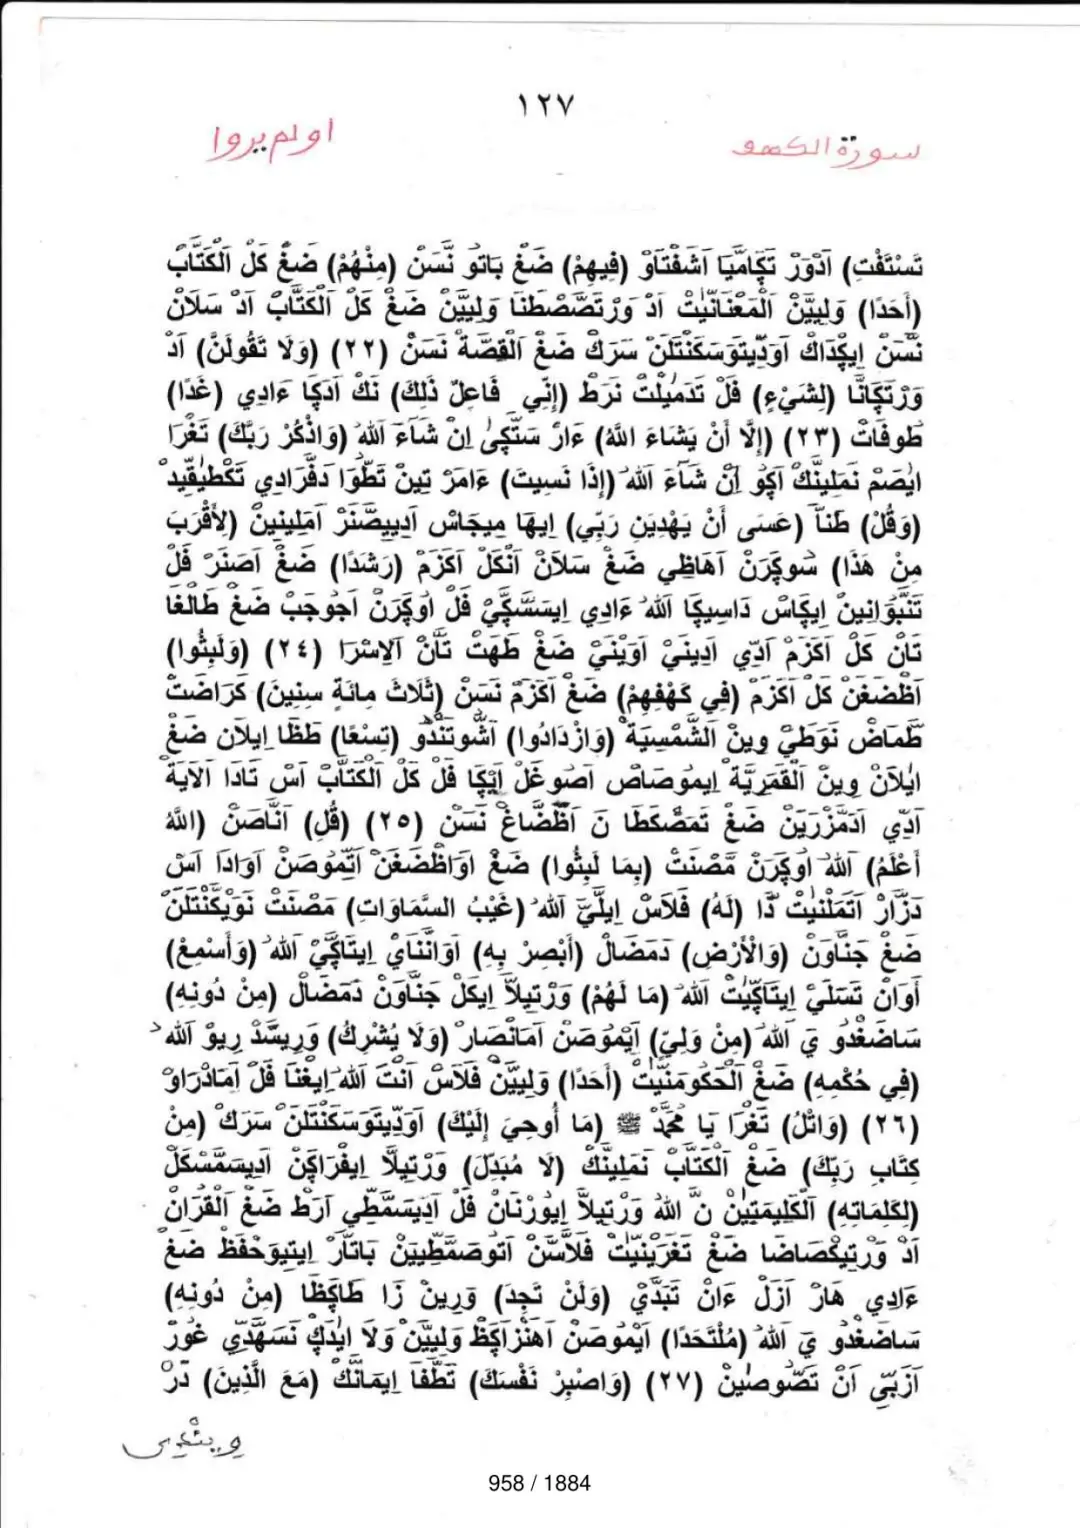 ١٢٧
سورة الكهف
اولم يروا
تَسْتَفْتِ) اَدْوَرْ تَكَامْيَا اَشَفْتَاوْ (فِيهِمْ) ضَغْ بَاتُو نَّسَنْ (مِنْهُمْ) ضَغْ كَلْ اَلْكَتَّابْ
(أَحَدًا) وَلِيَيَّنْ اَلْمَعْنَانَيْتْ اَدْ وَرْتَصَّصْطَنَا وَلِيَيَّنْ ضَغْ كَلْ اَلْكَتَّابْ اَدْ سَلَانْ
نَّسَنْ اِيكِدَاكْ اَوَدِّيتَوَسَكَنْتَلَنْ سَرَكْ ضَغْ اَلْقِصَّةْ نَسَنْ (٢٢) (وَلَا تَقُولَنَّ) اَدْ
وَرْتَكَانَّا (لِشَيْءٍ) فَلْ تَدَمِيْلْتْ نَرَطْ (إِنِّي فَاعِلٌ ذَلِكَ) نَكْ اَدَكَا ءَادِي (غَدًا)
طُوفَاتْ (٢٣) (إِلَّا أَنْ يَشَاءَ اللَّهُ) ءَارْ سَتَكِىْ اِنْ شَآءَ اللهْ (وَاذْكُرْ رَبَّكَ) تَغْرَا
اِيْصَمْ نَمَلِينَّكْ اَكُو اِنْ شَآءَ اللهْ (إِذَا نَسِيتَ) ءَامَرْ تِينْ تَطْوَا دَفْرَادِي تَكْطِيْقِّيدْ
(وَقُلْ) طَنآَ (عَسَى أَنْ يَهْدِيَنِ رَبِّي) اِيهَا مِيجَاسْ اَدِيِيصَّنَرْ اَمَلِينِينْ (لِأَقْرَبَ
مِنْ هَذَا) سُوكَرَنْ اَهَاظِي ضَغْ سَلَانْ اَنْكَلْ اَكَزَمْ (رَشَدًا) ضَغْ اَصَنَرْ فَلْ
تَنَبُّوَانِينْ اِيكَاسْ دَاسِيكَا اللهْ ءَادِي اِيسَسْكَيْ فَلْ اُوكَرَنْ اَجُوجَبْ ضَغْ طَالْغَا
تَانْ كَلْ اَكَزَمْ اَدِّي اَدِينَيْ اَوَيْنَيْ ضَغْ طَهَتْ تَاَنْ اَلاِسْرَا (٢٤) (وَلَبِثُوا)
اَظْضَغَنْ كَلْ اَكَزَمْ (فِي كَهْفِهِمْ) ضَغْ اَكَزَمْ نَسَنْ (ثَلَاثَ مِائَةٍ سِنِينَ) كَرَاضَتْ
طَّمَاضْ نَوَطَيْ وِينْ اَلشَّمْسِيَةْ (وَازْدَادُوا) اَشُّوتَنْدُو (تِسْعًا) طَظَا اِيلَانْ ضَغْ
اِيْلَانْ وِينْ اَلْقَمَرِيَّةْ اِيمُوصَاصْ اَصُوغَلْ اَيَكَا فَلْ كَلْ اَلْكَتَّابْ اَسْ تَادَا اَلاَيَةْ
اَدِّي اَدَمَّزْرَيَنْ ضَغْ تَمَصْكَطَا نَ اَظْضَّاغْ نَسَنْ (٢٥) (قُلِ) اَنَّاصَنْ (اللَّهُ
أَعْلَمُ) اَللهْ اُوكَرَنْ مَصْنَتْ (بِمَا لَبِثُوا) ضَغْ اَوَاظْضَغَنْ اَتِّمُوصَنْ اَوَادَا اَسْ
دَزَّارْ اَتَمَلْنِيْتْ ذَّا (لَهُ) فَلَاسْ اِيلَيَّ اَللهْ (غَيْبُ السَّمَاوَاتِ) مَصْنَتْ نَوِيكَنْتَلَنْ
ضَغْ جَنَّاوَنْ (وَالْأَرْضِ) دَمَضَالْ (أَبْصِرْ بِهِ) اَوَانَّنَايْ اِيتَاكَيْ اَللهْ (وَأَسْمِعْ)
أَوَانْ تَسَلَيْ اِيتَاكَيْتْ اَللهْ (مَا لَهُمْ) وَرْتِيلَا اِيكَلْ جَنَّاوَنْ دَمَضَالْ (مِنْ دُونِهِ)
سَاضَغْدُو يَ اَللهْ (مِنْ وَلِيٍّ) اَيْمُوصَنْ اَمَانْصَارْ (وَلَا يُشْرِكُ) وَرِيسَّدْ رِيوْ اَللهْ
(فِي حُكْمِهِ) ضَغْ اَلْحَكُومَنَّيْتْ (أَحَدًا) وَلِيَيَّنْ فَلَاسْ اَنْتَ اَللهْ اِيغْنَا فَلْ اِمَادْرَاوْ
(٢٦) (وَاتْلُ) تَغْرَا يَا مُحَمَّدْ ﷺ (مَا أُوحِيَ إِلَيْكَ) اَوَدِّيتَوَسَكَنْتَلَنْ سَرَكْ (مِنْ
كِتَابِ رَبِّكَ) ضَغْ اَلْكَتَّابْ نَمَلِينَّكْ (لَا مُبَدِّلَ) وَرْتِيلَا اِيفْرَاكَنْ اَدِيسَمَّسْكَلْ
(لِكَلِمَاتِهِ) اَلْكَلِيمَتِيْنْ نَّ اَللهْ وَرْتِيلَا اِيوْرْنَانْ فَلْ اَدِيَسَمَّطِي اَرَطْ ضَغْ اَلْقُرَانْ
اَدْ وَرْتِيكْصَاضَا ضَغْ تَغْرَيْنِيْتْ فَلَاسَّنْ اَتُوصَمَّطِيَيَنْ بَاتَارْ اِيتِيوَحْفَظْ ضَغْ
ءَادِي هَارْ اَزَلْ ءَانْ تَبَدَّيْ (وَلَنْ تَجِدَ) وَرِينْ زَا طَاكَظَا (مِنْ دُونِهِ)
سَاضَغْدُو يَ اَللهْ (مُلْتَحَدًا) اَيْمُوصَنْ اَهَنْزَاكَظْ وَلِيَيَّنْ وَلَا اِيْدَكْ نَسَهَّدِي غُورْ
اَزَبِّي اَنْ تَصُّوصِيْنْ (٢٧) (وَاصْبِرْ نَفْسَكَ) تَطَّفَا اِيمَانَّكْ (مَعَ الَّذِينَ) دَرْ
958 / 1884